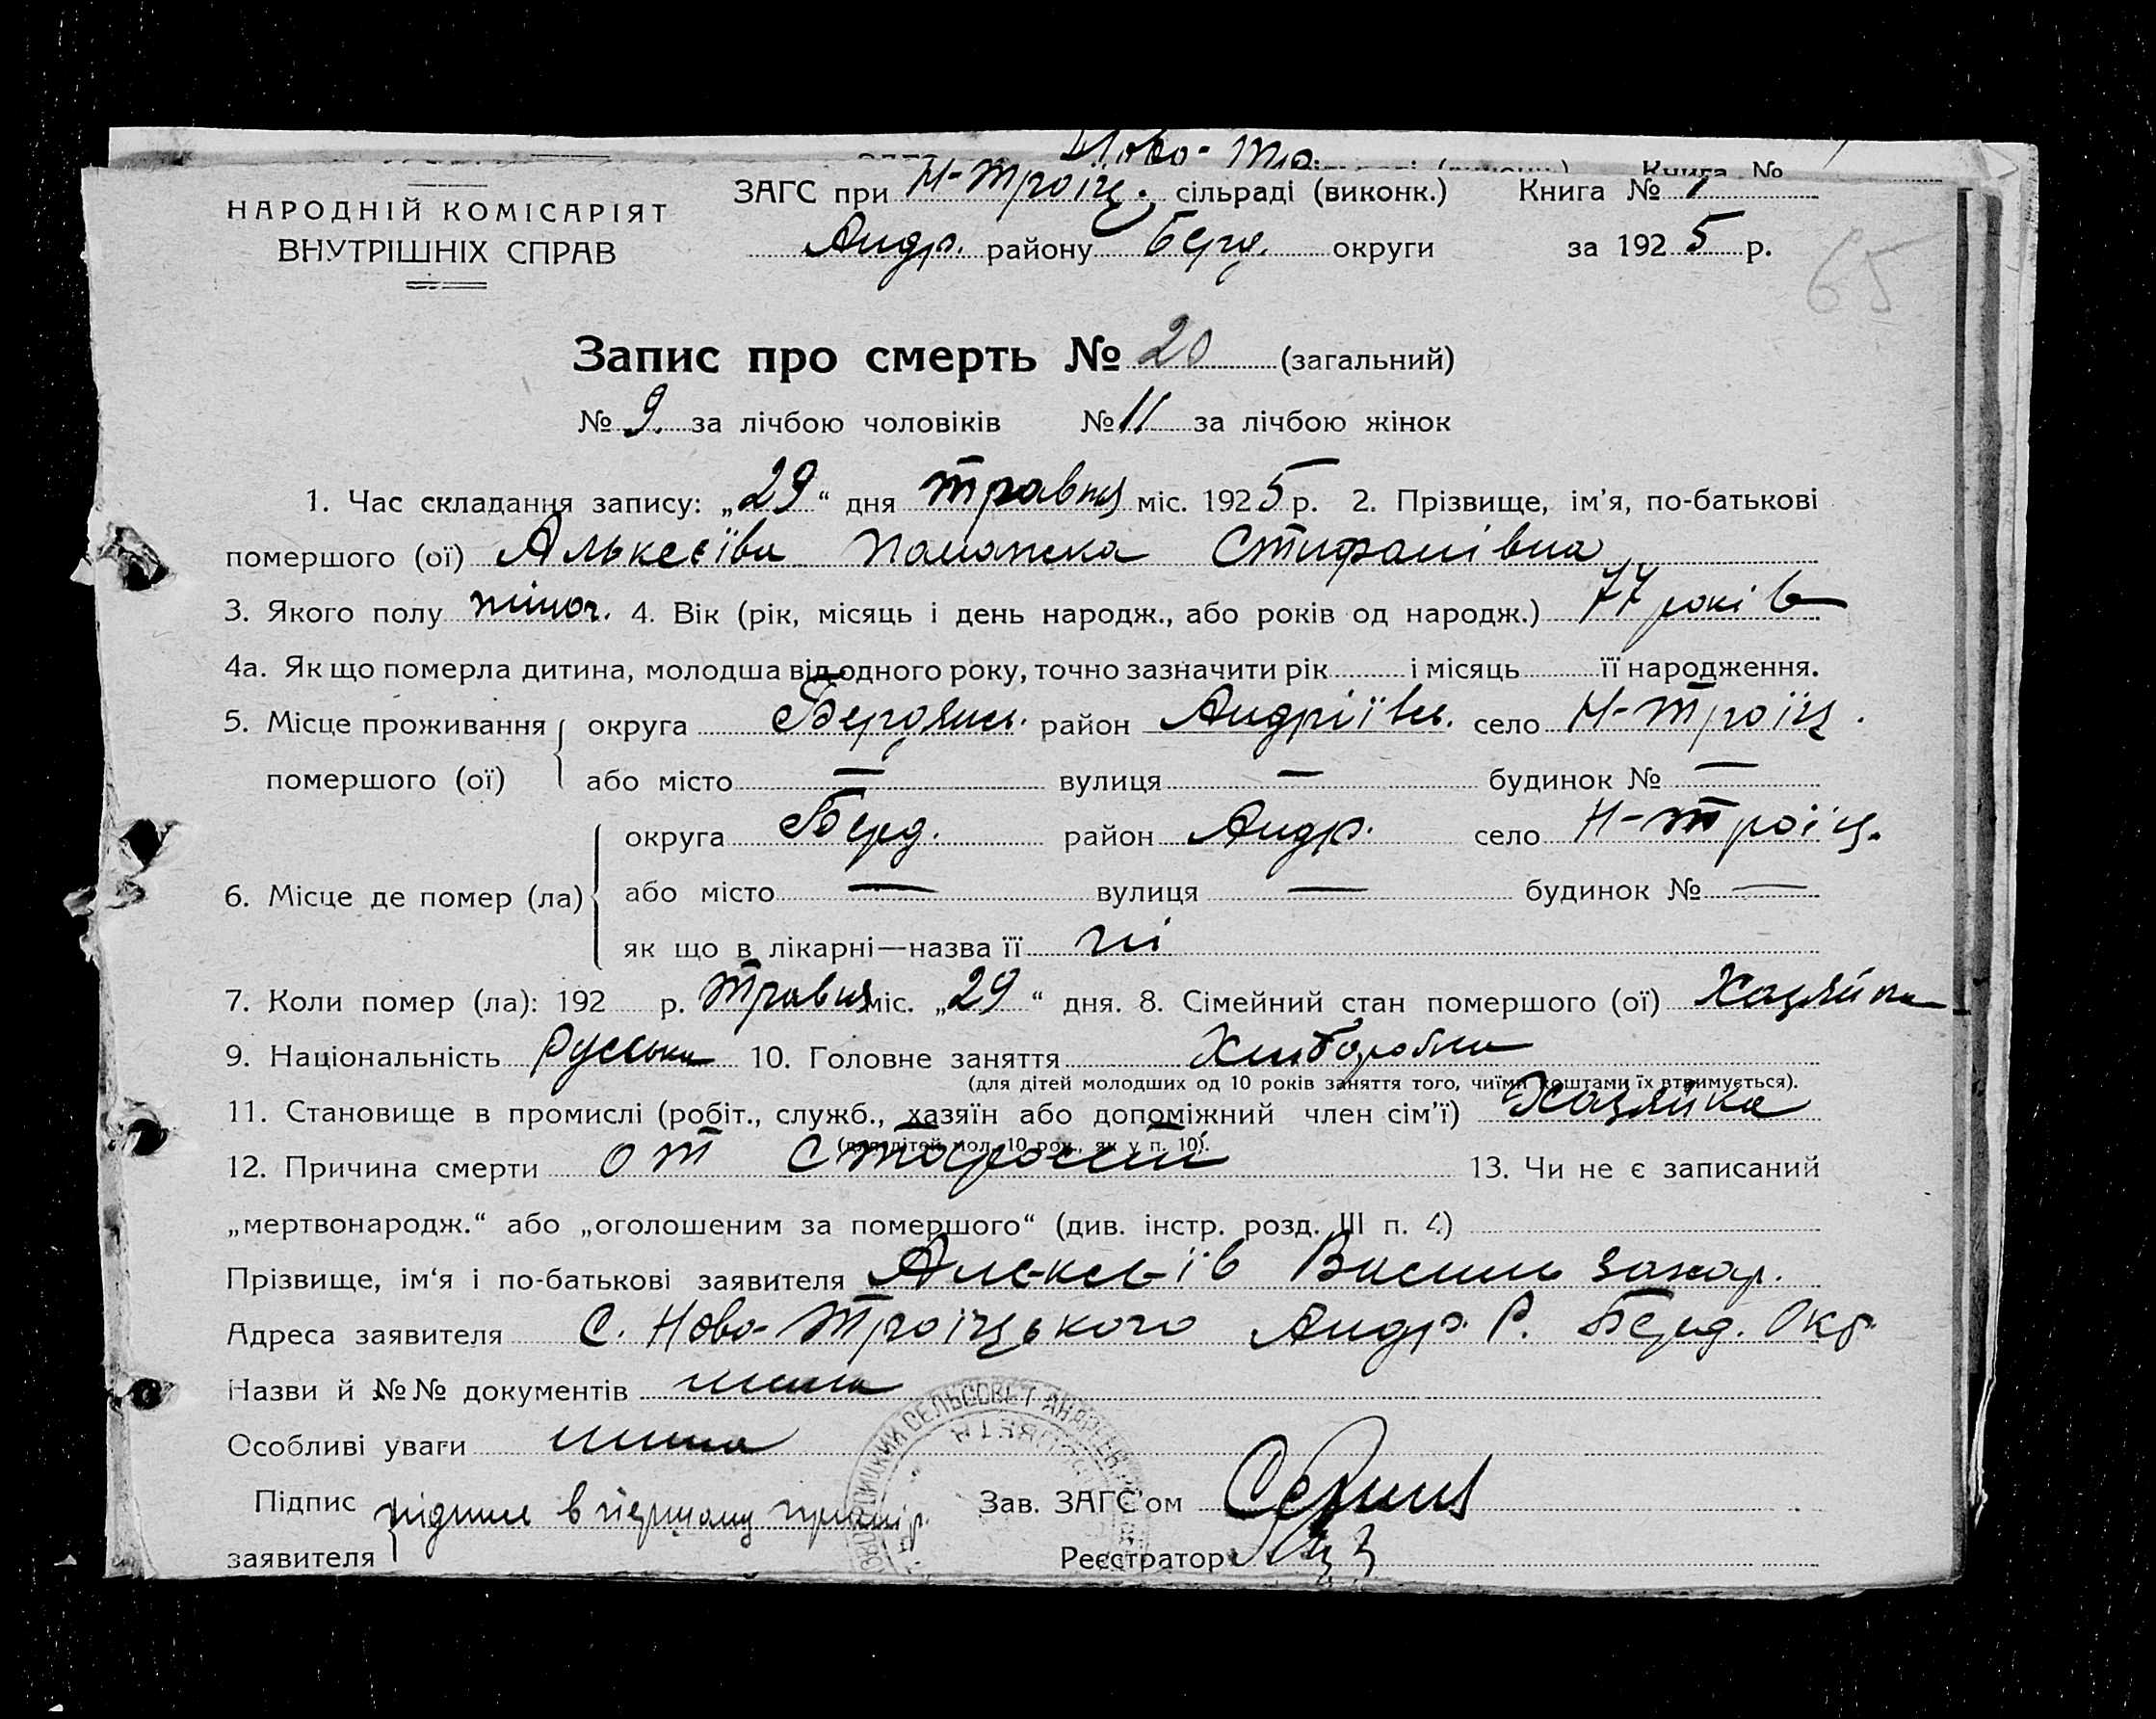 Ново-Тро.
Книга №
НАРОДНІЙ КОМІСАРІЯТ
ВНУТРІШНІХ СПРАВ
ЗАГС при Н-Троїц. сільраді (виконк.) Книга № 1
Андр. району Берд. округи за 1925 р.
65
Запис про смерть № 20 (загальний)
№ 9. за лічбою чоловіків № 11 за лічбою жінок
1. Час складання запису: „29“ дня травня міс. 1925 р. 2. Прізвище, ім’я, по-батькові
помершого (ої) Алькеєїва Палажка Стифанівна
3. Якого полу жіноч. 4. Вік (рік, місяць і день народж., або років од народж.) 77 років
4а. Як що померла дитина, молодша від одного року, точно зазначити рік і місяць її народження.
5. Місце проживання помершого (ої) округа Бердянсь. район Андріївсь. село Н-Троїц.
або місто — вулиця — будинок № —
6. Місце де помер (ла) округа Берд. район Андр. село Н-Троїц.
або місто — вулиця — будинок № —
як що в лікарні—назва її ні
7. Коли помер (ла): 192 р. Травня міс. „29“ дня. 8. Сімейний стан помершого (ої) Хазяйка
9. Національність Руська 10. Головне заняття Хлиборобка
(для дітей молодших од 10 років заняття того, чиїми коштами їх втримується).
11. Становище в промислі (робіт., служб., хазяїн або допоміжний член сім’ї) Хазяйка
(для дітей мол. 10 рок., як у п. 10).
12. Причина смерти от старости 13. Чи не є записаний
„мертвонародж.“ або „оголошеним за помершого“ (див. інстр. розд. III п. 4)
Прізвище, ім‘я і по-батькові заявителя Алексеїв Василь Захар.
Адреса заявителя С. Ново-Троїцького Андр. Р. Берд. Окр.
Назви й №№ документів нима
Особливі уваги нима
Підпис заявителя підпис в першому примір.
Зав. ЗАГС’ом
Реєстратор
СЕЛЬСОВЕТ